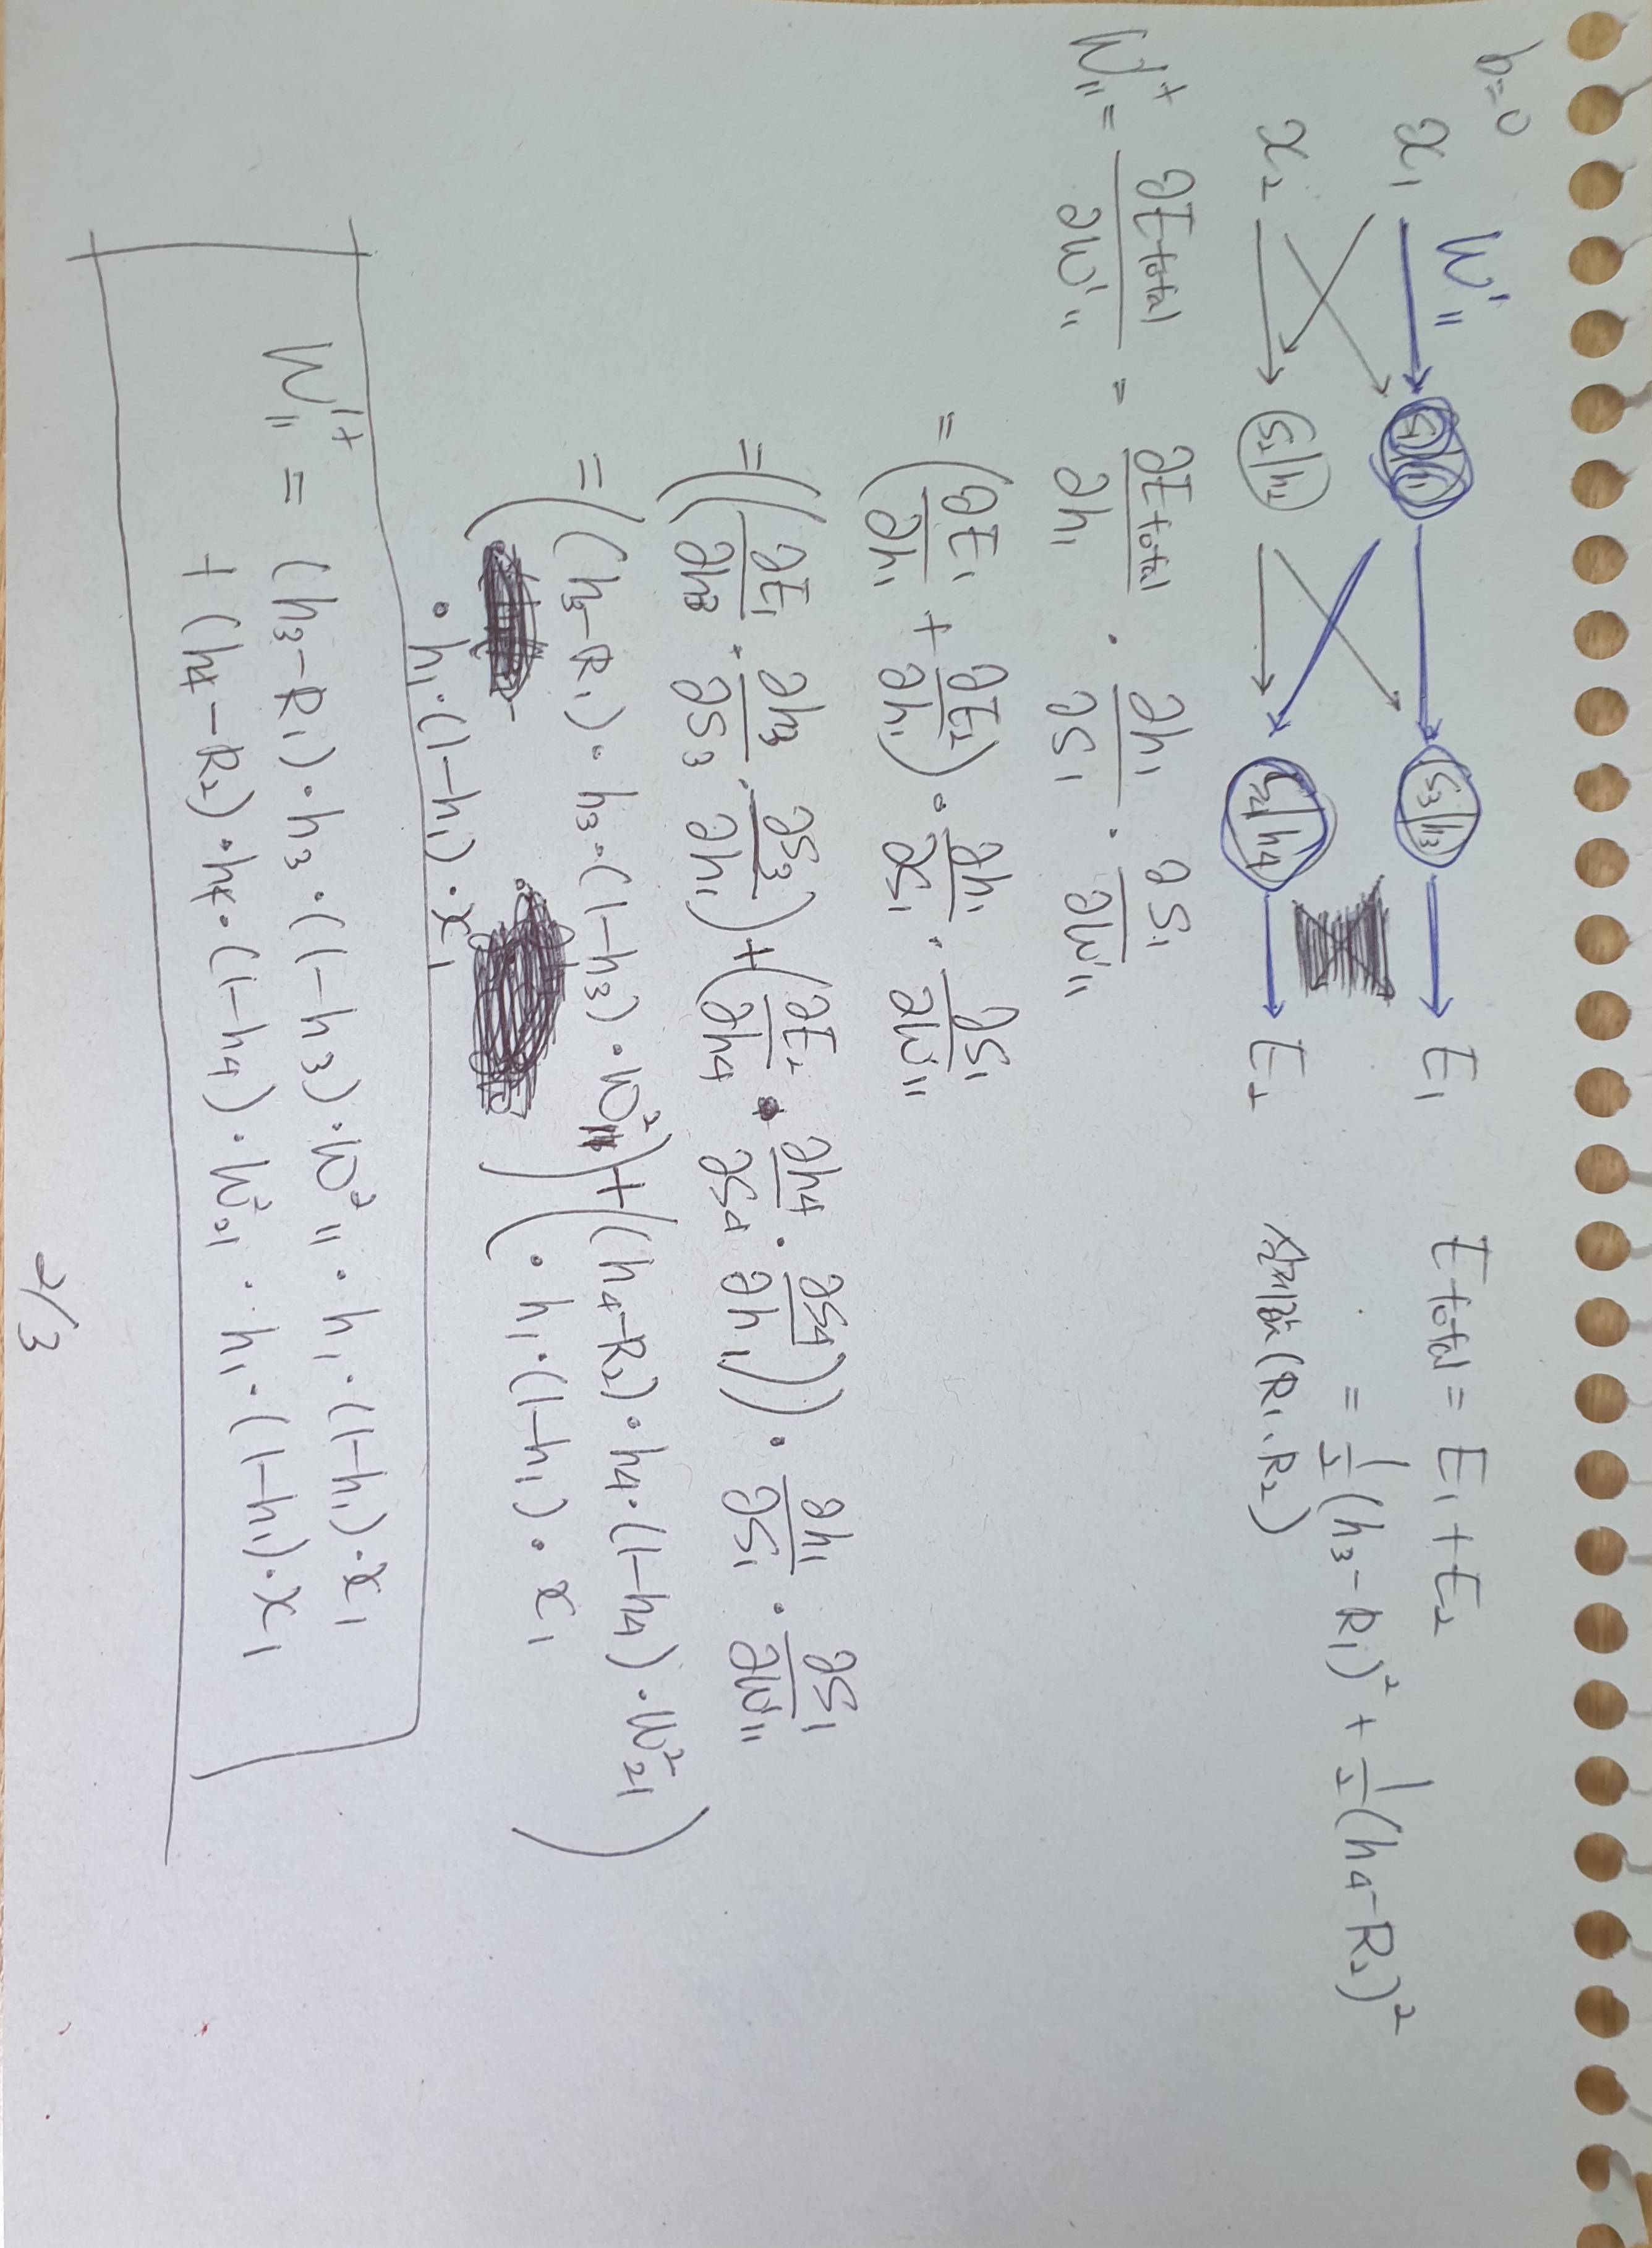 b=0
x₁ W¹₁₁ S₁|h₁ S₃|h₃ E₁ E total = E₁ + E₂
x₂ S₂|h₂ S₄|h₄ E₂ = 1/2(h₃-R₁)² + 1/2(h₄-R₂)²
실제값(R₁, R₂)
W¹⁺₁₁ = ∂E total/∂W¹₁₁ = ∂E total/∂h₁ · ∂h₁/∂S₁ · ∂S₁/∂W¹₁₁
= (∂E₁/∂h₁ + ∂E₂/∂h₁) · ∂h₁/∂S₁ · ∂S₁/∂W¹₁₁
= ((∂E₁/∂h₃ · ∂h₃/∂S₃ · ∂S₃/∂h₁) + (∂E₂/∂h₄ · ∂h₄/∂S₄ · ∂S₄/∂h₁)) · ∂h₁/∂S₁ · ∂S₁/∂W¹₁₁
= ((h₃-R₁) · h₃ · (1-h₃) · W²₁₁) + ((h₄-R₂) · h₄ · (1-h₄) · W²₂₁)
( ) ( · h₁ · (1-h₁) · x₁
· h₁ · (1-h₁) · x₁
W¹⁺₁₁ = (h₃-R₁) · h₃ · (1-h₃) · W²₁₁ · h₁ · (1-h₁) · x₁
+ (h₄-R₂) · h₄ · (1-h₄) · W²₂₁ · h₁ · (1-h₁) · x₁
2/3